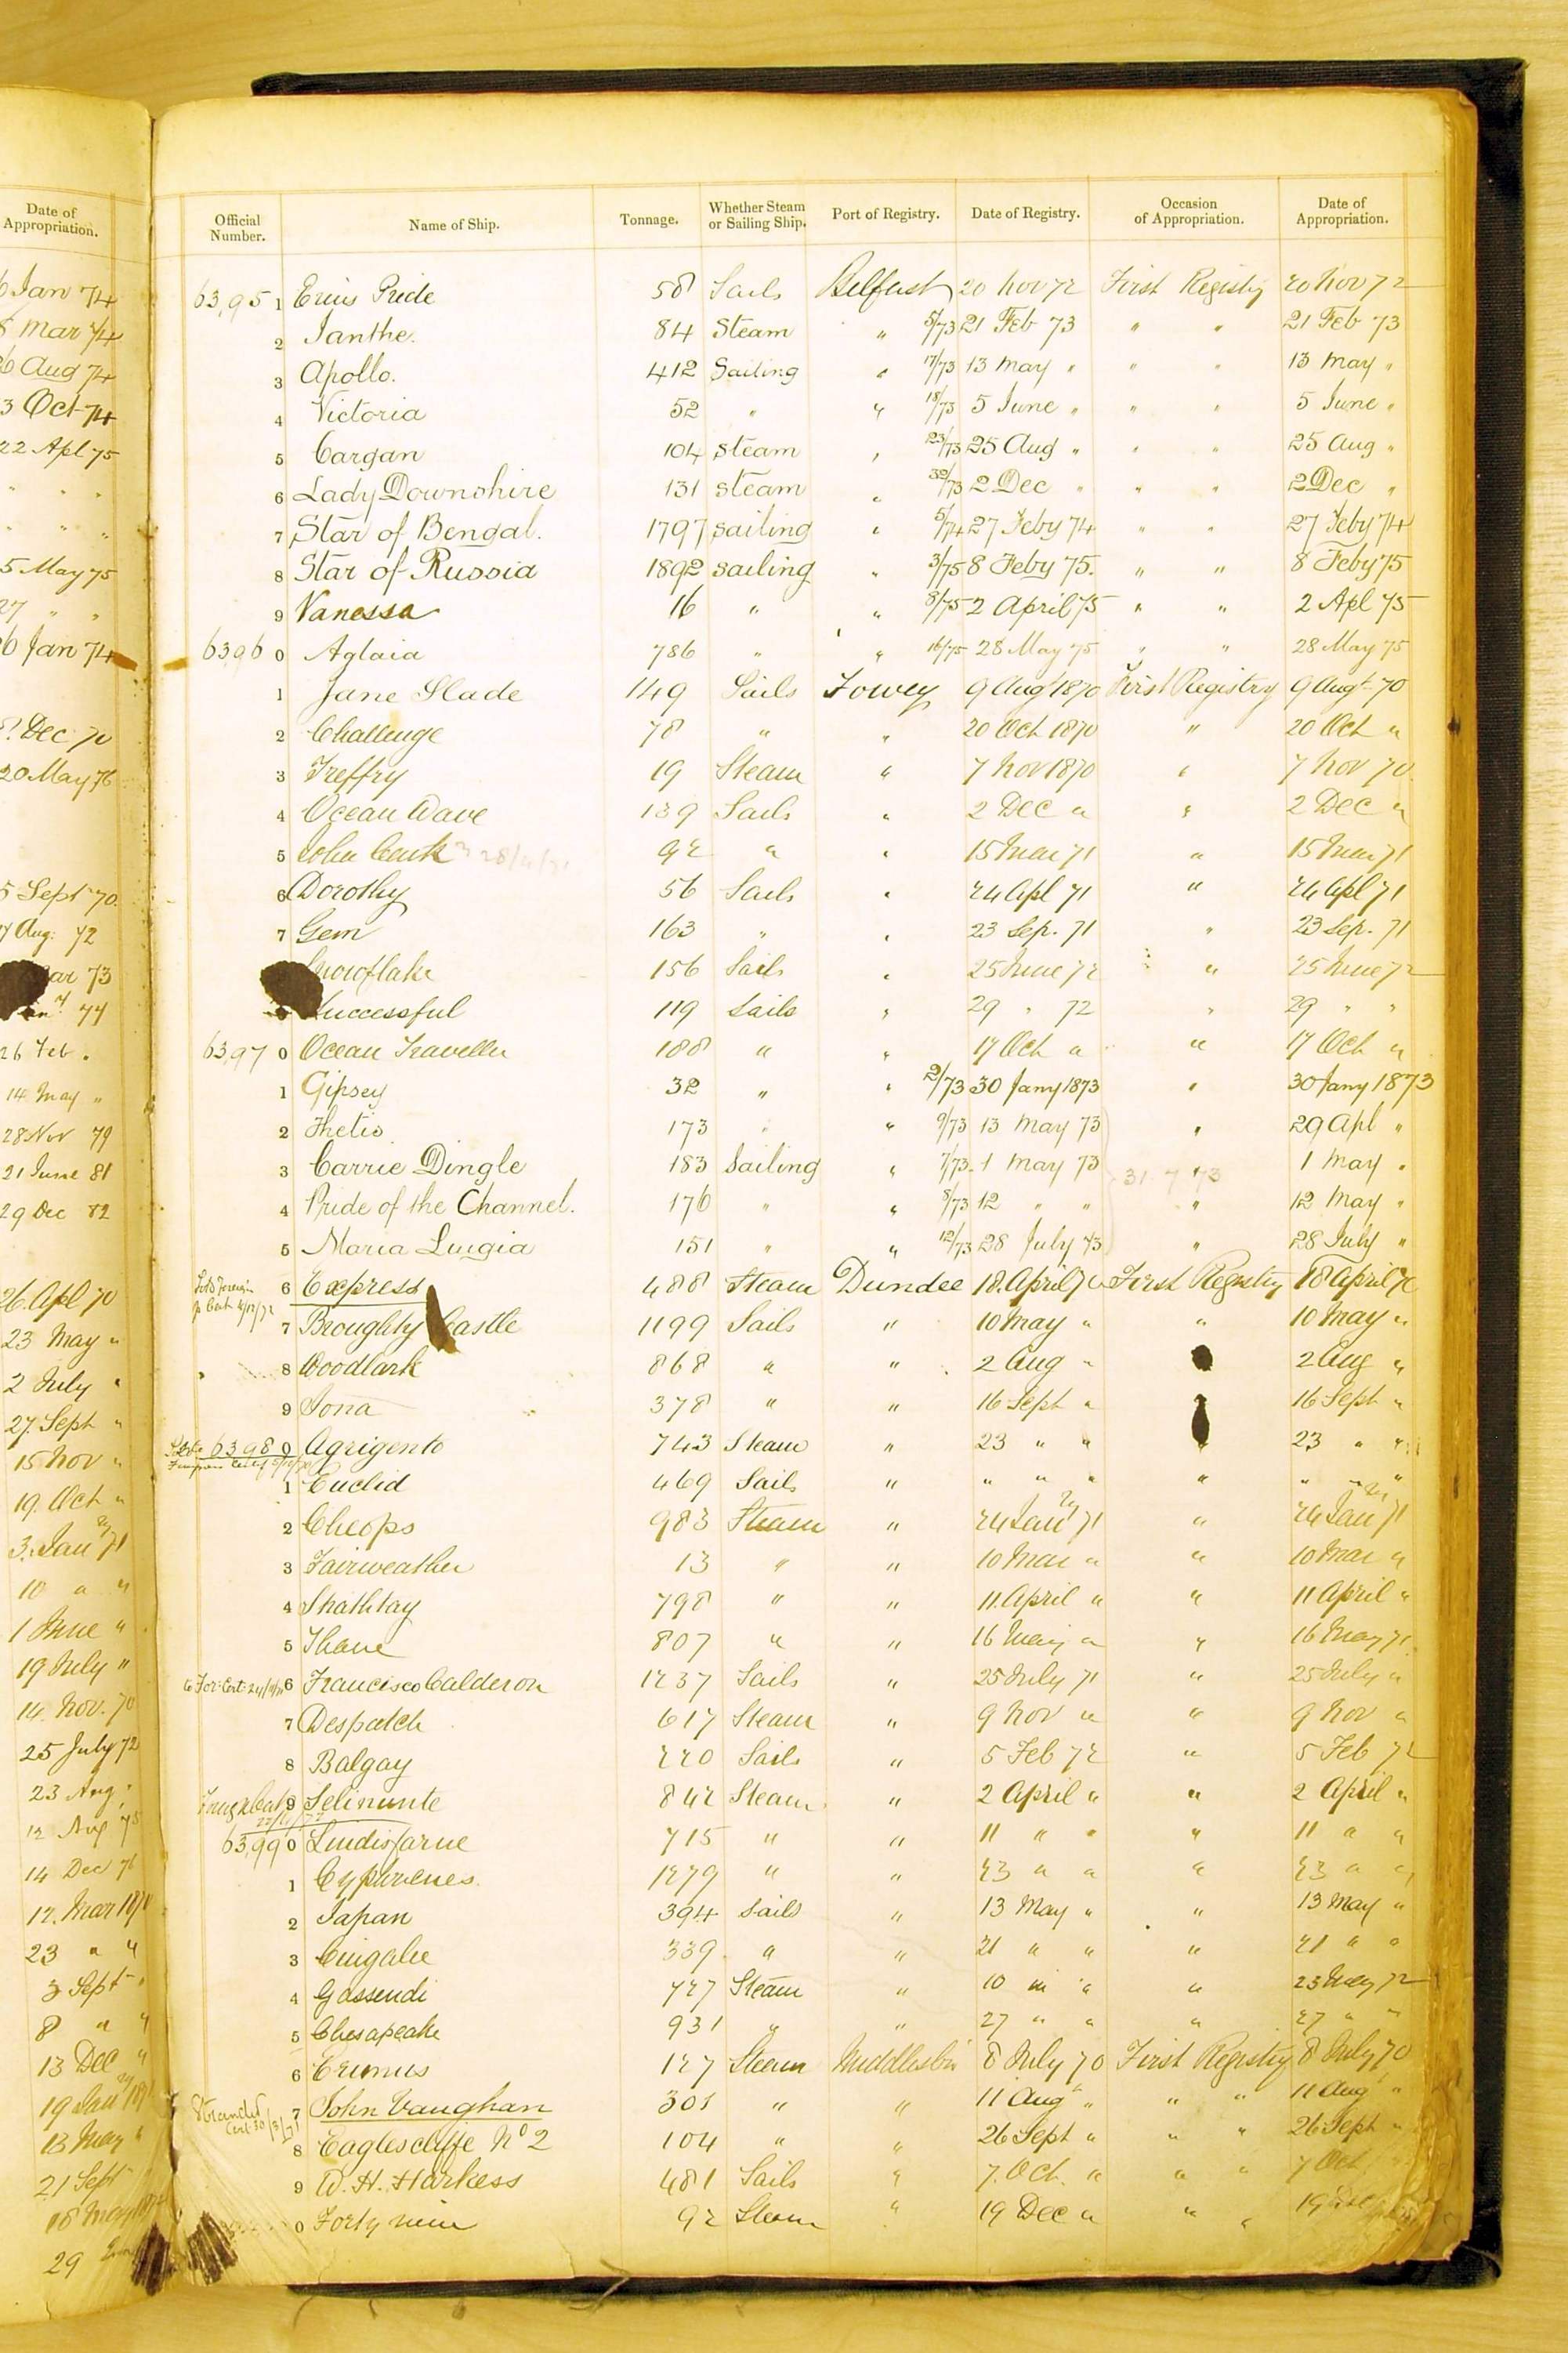 Date of Appropriation.
6 Jan 74
8 Mar 74
26 Aug 74
3 Oct 74
22 Apl 75
" " "
" " "
5 May 75
27 " "
6 Jan 74
Dec 70
20 May 76
5 Sept 70
Aug. 72
Mar 73
74
26 Feb.
14 May "
28 Nov 79
21 June 81
29 Dec 82
26. Apl 70
23 May "
2 July "
27. Sept "
15 Nov "
19. Oct "
3. Jan 71
10 " "
1 June "
19 July "
14. Nov. 70
25 July 72
23 Aug.
12 Aug 75
14 Dec 76
12. Mar 1870
23 " "
3 Sept "
8 " "
13 Dec "
19 Jan
13 May "
21 Sept
18 May
29
Official Number. Name of Ship. Tonnage. Whether Steam or Sailing Ship. Port of Registry. Date of Registry. Occasion of Appropriation. Date of Appropriation.
63,951 Erins Pride 58 Sails Belfast 20 Nov 72 First Registry 20 Nov 72
2 Ianthe. 84 Steam " 5/73 21 Feb 73 " " 21 Feb 73
3 Apollo. 412 Sailing " 17/73 13 May " " " 13 May "
4 Victoria 52 " " 18/73 5 June " " " 5 June "
5 Cargan 104 steam " 23/73 25 Aug " " " 25 Aug "
6 Lady Downshire 131 steam " 32/73 2 Dec " " " 2 Dec "
7 Star of Bengal. 1797 sailing " 5/74 27 Feby 74 " " 27 Feby 74
8 Star of Russia 1892 sailing " 3/75 8 Feby 75. " " 8 Feby 75
9 Vanessa 16 " " 8/75 2 April 75 " " 2 Apl 75
6396 0 Aglaia 786 " " 16/75 28 May 75 " " 28 May 75
1 Jane Slade 149 Sails Fowey 9 Augt 1870 First Registry 9 Augt 70
2 Challenge 78 " " 20 Oct 1870 " 20 Oct "
3 Treffry 19 Steam " 7 Nov 1870 " 7 Nov 70
4 Ocean Wave 139 Sails " 2 Dec " " 2 Dec "
5 John 92 " " 15 Mar 71 " 15 Mar 71
6 Dorothy 56 Sails " 24 Apl 71 " 24 Apl 71
7 Gem 163 " " 23 Sep. 71 " 23 Sep. 71
Snowflake 156 Sails " 25 June 72 " 25 June 72
Successful 119 Sails " 29 " 72 " 29 " "
63,97 0 Ocean Traveller 188 " " 17 Oct " " 17 Oct "
1 Gipsey 32 " " 2/73 30 Jany 1873 " 30 Jany 1873
2 Thetis 173 " " 9/73 13 May 73 " 29 Apl "
3 Carrie Dingle 183 Sailing " 7/73. 1 May 73 31.7.73 " 1 May "
4 Pride of the Channel. 176 " " 8/73 12 " " " 12 May "
5 Maria Luigia 151 " " 12/73 28 July 73 " 28 July "
Sold Foreign
6 Express 488 Steam Dundee 18. April 70 First Registry 18 April 70
7 Broughty Castle 1199 Sails " 10 May " " 10 May "
8 Woodlark 868 " " 2 Aug " 2 Aug "
9 Iona 378 " " 16 Sept " 16 Sept "
6398 0 Agrigento 743 Steam " 23 " " " 23 " "
1 Euclid 469 Sails " " " " " " " "
2 Cheops 983 Steam " 24 Jan 71 " 24 Jan 71
3 Fairweather 13 " " 10 Mar " " 10 Mar "
4 Strathtay 798 " " 11. April " " 11 April "
5 Thane 807 " " 16 May " " 16 May 71
6 Francisco Calderon 1237 Sails " 25 July 71 " 25 July "
7 Despatch 617 Steam " 9 Nov " " 9 Nov "
8 Balgay 220 Sails " 5 Feb 72 " 5 Feb 72
9 Selinunte 842 Steam " 2 April " " 2 April "
63,99 0 Lindisfarne 715 " " 11 " " " 11 " "
1 1279 " " 23 " " " 23 " "
2 Japan 394 Sails " 13 May " " 13 May "
3 Cingalee 339 " " 21 " " " 21 " "
4 Gassendi 727 Steam " 10 " " 23 May 72
5 Chesapeake 931 " " 27 " " " 27 " "
6 Erimus 127 Steam Middlesbro 8 July 70 First Registry 8 July 70
Stranded
7 John Vaughan 301 " " 11 Aug " " " 11 Aug "
8 Eaglescliffe No 2 104 " " 26 Sept " " " 26 Sept "
9 W. H. Harkess 481 Sails " 7. Oct. " " " 7 Oct
0 Forty nine 92 Steam " 19 Dec " " " 19 Dec